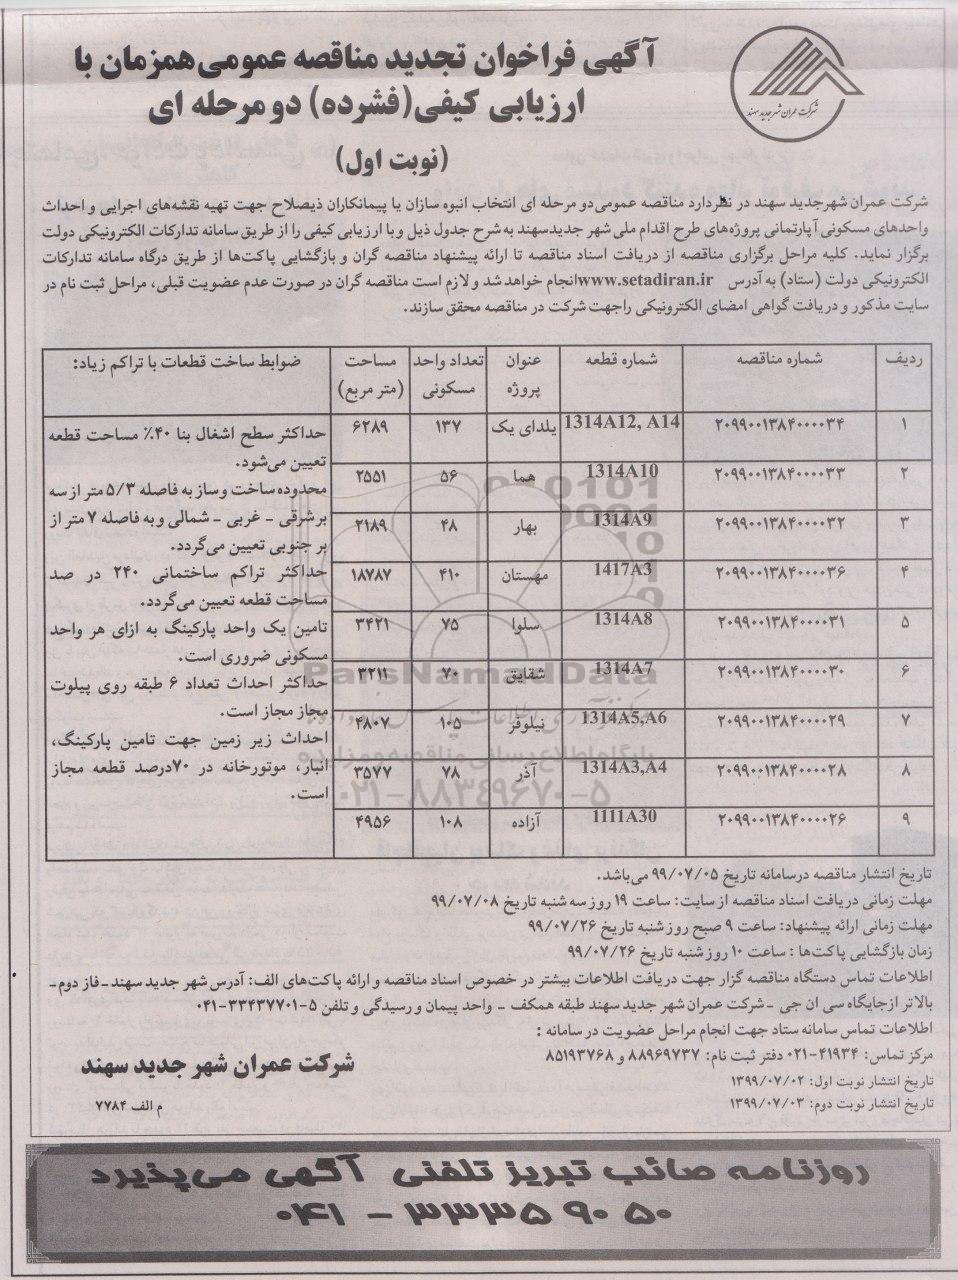 شرکت عمران شهر جدید سهند
آگهی فراخوان تجدید مناقصه عمومی همزمان با
ارزیابی کیفی (فشرده) دو مرحله ای
(نوبت اول)
شرکت عمران شهر جدید سهند در نظر دارد مناقصه عمومی دو مرحله ای انتخاب انبوه سازان یا پیمانکاران ذیصلاح جهت تهیه نقشه‌های اجرایی و احداث
واحدهای مسکونی آپارتمانی پروژه‌های طرح اقدام ملی شهر جدید سهند به شرح جدول ذیل و با ارزیابی کیفی را از طریق سامانه تدارکات الکترونیکی دولت
برگزار نماید. کلیه مراحل برگزاری مناقصه از دریافت اسناد مناقصه تا ارائه پیشنهاد مناقصه گران و بازگشایی پاکت‌ها از طریق درگاه سامانه تدارکات
الکترونیکی دولت (ستاد) به آدرس www.setadiran.ir انجام خواهد شد و لازم است مناقصه گران در صورت عدم عضویت قبلی، مراحل ثبت نام در
سایت مذکور و دریافت گواهی امضای الکترونیکی را جهت شرکت در مناقصه محقق سازند.
ردیف شماره مناقصه شماره قطعه عنوان پروژه تعداد واحد مسکونی مساحت (متر مربع) ضوابط ساخت قطعات با تراکم زیاد:
۱ ۲۰۹۹۰۰۱۳۸۴۰۰۰۰۳۴ 1314A12, A14 یلدای یک ۱۳۷ ۶۲۸۹
۲ ۲۰۹۹۰۰۱۳۸۴۰۰۰۰۳۳ 1314A10 هما ۵۶ ۲۵۵۱
۳ ۲۰۹۹۰۰۱۳۸۴۰۰۰۰۳۲ 1314A9 بهار ۴۸ ۲۱۸۹
۴ ۲۰۹۹۰۰۱۳۸۴۰۰۰۰۳۶ 1417A3 مهستان ۴۱۰ ۱۸۷۸۷
۵ ۲۰۹۹۰۰۱۳۸۴۰۰۰۰۳۱ 1314A8 سلوا ۷۵ ۳۴۲۱
۶ ۲۰۹۹۰۰۱۳۸۴۰۰۰۰۳۰ 1314A7 شقایق ۷۰ ۳۲۱۱
۷ ۲۰۹۹۰۰۱۳۸۴۰۰۰۰۲۹ 1314A5,A6 نیلوفر ۱۰۵ ۴۸۰۷
۸ ۲۰۹۹۰۰۱۳۸۴۰۰۰۰۲۸ 1314A3,A4 آذر ۷۸ ۳۵۷۷
۹ ۲۰۹۹۰۰۱۳۸۴۰۰۰۰۲۶ 1111A30 آزاده ۱۰۸ ۴۹۵۶
حداکثر سطح اشغال بنا ۴۰٪ مساحت قطعه
تعیین می‌شود.
محدوده ساخت و ساز به فاصله ۵/۳ متر از سه
بر شرقی - غربی - شمالی و به فاصله ۷ متر از
بر جنوبی تعیین می‌گردد.
حداکثر تراکم ساختمانی ۲۴۰ در صد
مساحت قطعه تعیین می‌گردد.
تامین یک واحد پارکینگ به ازای هر واحد
مسکونی ضروری است.
حداکثر احداث تعداد ۶ طبقه روی پیلوت
مجاز مجاز است.
احداث زیر زمین جهت تامین پارکینگ،
انبار، موتورخانه در ۷۰درصد قطعه مجاز
است.
ParsNamadData
۰۲۱-۸۸۳۴۹۶۷۰-۵
تاریخ انتشار مناقصه در سامانه تاریخ ۹۹/۰۷/۰۵ می‌باشد.
مهلت زمانی دریافت اسناد مناقصه از سایت: ساعت ۱۹ روز سه شنبه تاریخ ۹۹/۰۷/۰۸
مهلت زمانی ارائه پیشنهاد: ساعت ۹ صبح روز شنبه تاریخ ۹۹/۰۷/۲۶
زمان بازگشایی پاکت‌ها : ساعت ۱۰ روز شنبه تاریخ ۹۹/۰۷/۲۶
اطلاعات تماس دستگاه مناقصه گزار جهت دریافت اطلاعات بیشتر در خصوص اسناد مناقصه و ارائه پاکت‌های الف: آدرس شهر جدید سهند - فاز دوم-
بالاتر از جایگاه سی ان جی - شرکت عمران شهر جدید سهند طبقه همکف - واحد پیمان و رسیدگی و تلفن ۵-۳۳۴۳۷۷۰۱-۰۴۱
اطلاعات تماس سامانه ستاد جهت انجام مراحل عضویت در سامانه :
مرکز تماس: ۴۱۹۳۴-۰۲۱ دفتر ثبت نام: ۸۸۹۶۹۷۳۷ و ۸۵۱۹۳۷۶۸
تاریخ انتشار نوبت اول: ۱۳۹۹/۰۷/۰۲
تاریخ انتشار نوبت دوم: ۱۳۹۹/۰۷/۰۳
شرکت عمران شهر جدید سهند
م الف ۷۷۸۴
روزنامه صائب تبریز تلفنی آگهی می‌پذیرد
۰۴۱ - ۳۳۳۵۹۰۵۰